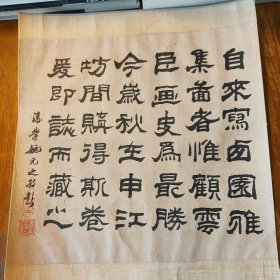 自來寫西園雅
集啚者惟顧雲
臣画史為最勝
今歲秋在申江
坊間購得斯卷
爰即誌而藏之
後學姚元之敬題